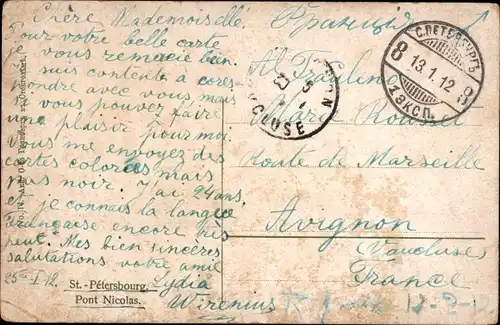 Chère Mademoiselle.
Pour votre belle carte
je vous remercie bien
suis contente à cores-
pondre avec vous mais
vous pouvez faire
une plaisir pour moi
Vous me envoyez des
cartes colorées mais
pas noir. J'ai 24 ans
et je connais la langue
française encore très
peu. Mes bien sincères
salutations votre amie
25го I 12. Lydia
Wirenius
St.-Pétersbourg.
Pont Nicolas.
Франція
С.ПЕТЕРБУРГЪ
8 13.1.12 8
1 ЭКСП.
VAUCLUSE
Fräulein
Marie Roussel
Route de Marseille
Avignon
(Vaucluse)
France